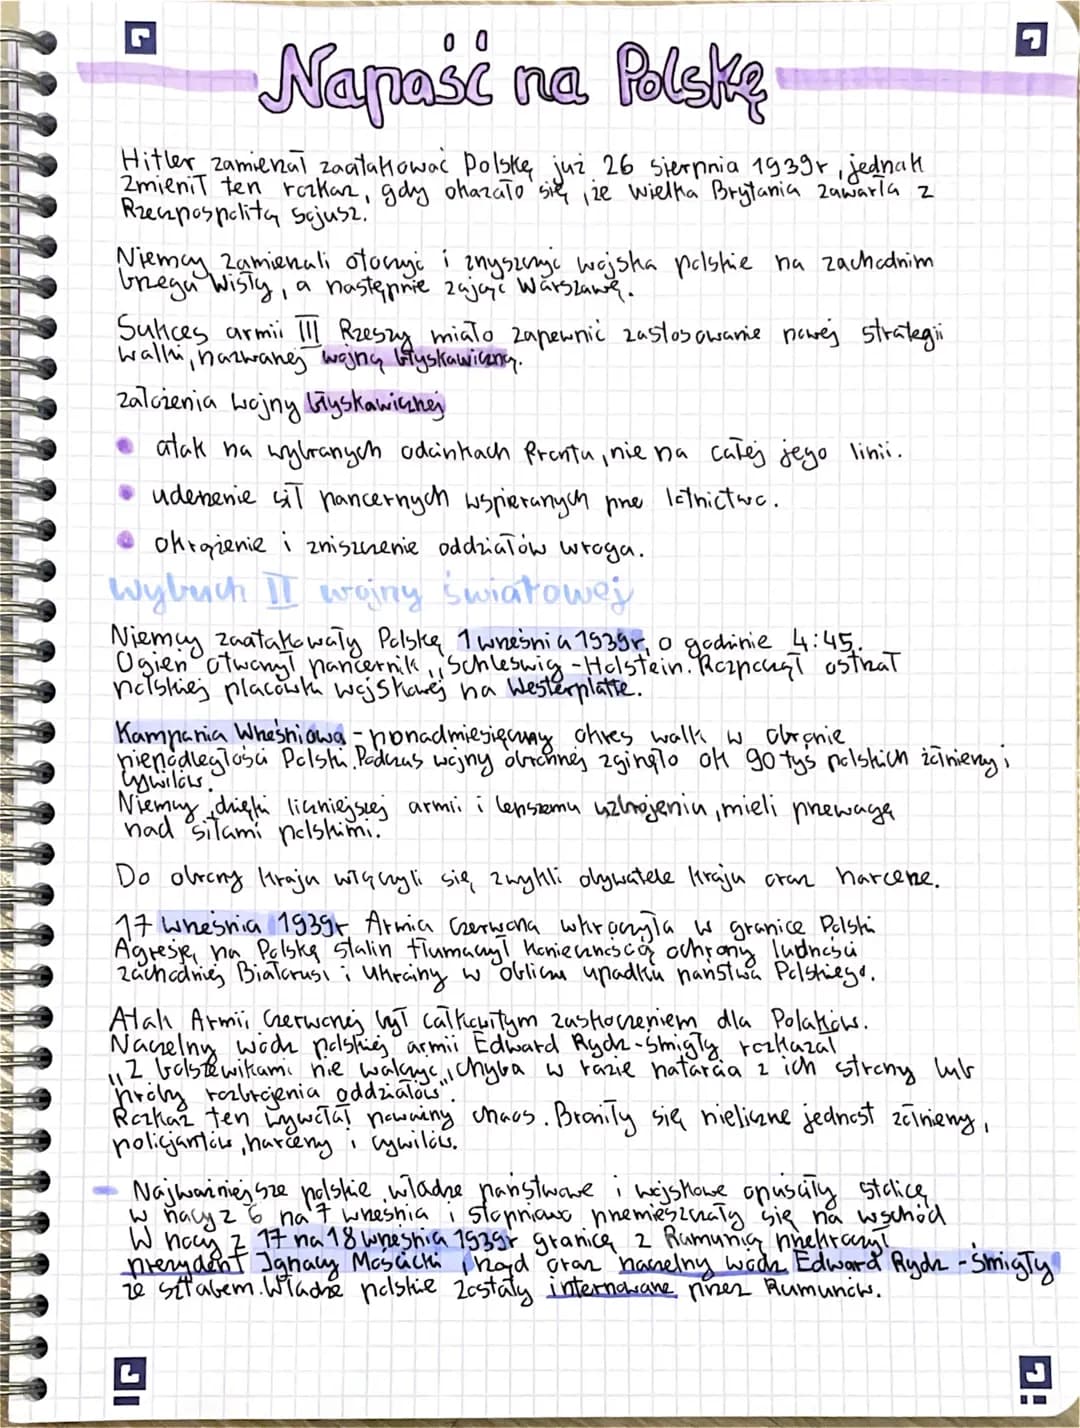 Napaść na Polskę
Hitler zamierzał zaatakować Polskę już 26 sierpnia 1939r, jednak
zmienił ten rozkaz, gdy okazało się, że Wielka Brytania zawarła z
Rzeczpospolitą sojusz.
Niemcy zamierzali otoczyć i zniszczyć wojska polskie na zachodnim
brzegu Wisły, a następnie zająć Warszawę.
Sukces armii III Rzeszy miało zapewnić zastosowanie nowej strategii
walki, nazwanej wojną błyskawiczną.
założenia wojny błyskawicznej
• atak na wybranych odcinkach frontu, nie na całej jego linii.
• uderzenie sił pancernych wspieranych prze lotnictwo.
• okrążenie i zniszczenie oddziałów wroga.
Wybuch II wojny światowej
Niemcy zaatakowały Polskę 1 września 1939r, o godzinie 4:45.
Ogień otworzył pancernik ,,Schleswig-Holstein. Rozpoczął ostrzał
polskiej placówki wojskowej na Westerplatte.
Kampania Wrześniowa - ponadmiesięczny okres walk w obronie
niepodległości Polski. Podczas wojny obronnej zginęło ok 90 tyś polskich żołnierzy i
cywilów.
Niemcy, dzięki liczniejszej armii i lepszemu uzbrojeniu, mieli przewagę
nad siłami polskimi.
Do obrony kraju włączyli się zwykli obywatele kraju oraz harcerze.
17 września 1939r Armia Czerwona wkroczyła w granice Polski
Agresję na Polskę Stalin tłumaczył koniecznością ochrony ludności
zachodniej Białorusi i Ukrainy w obliczu upadku państwa Polskiego.
Atak Armii Czerwonej był całkowitym zaskoczeniem dla Polaków.
Naczelny wódz polskiej armii Edward Rydz-Śmigły rozkazał
,,Z bolszewikami nie walczyć, chyba w razie natarcia z ich strony lub
próby rozbrojenia oddziałów".
Rozkaz ten wywołał poważny chaos. Broniły się nieliczne jednost żołnierzy,
policjantów, harcerzy i cywilów.
- Najważniejsze polskie władze państwowe i wojskowe opuściły stolicę
w nocy z 6 na 7 września i stopniowo przemieszczały się na wschód
W nocy z 17 na 18 września 1939r granicę z Rumunią przekroczył
prezydent Ignacy Mościcki i rząd oraz naczelny wódz Edward Rydz-Śmigły
ze sztabem. Władze polskie zostały internowane przez Rumunów.